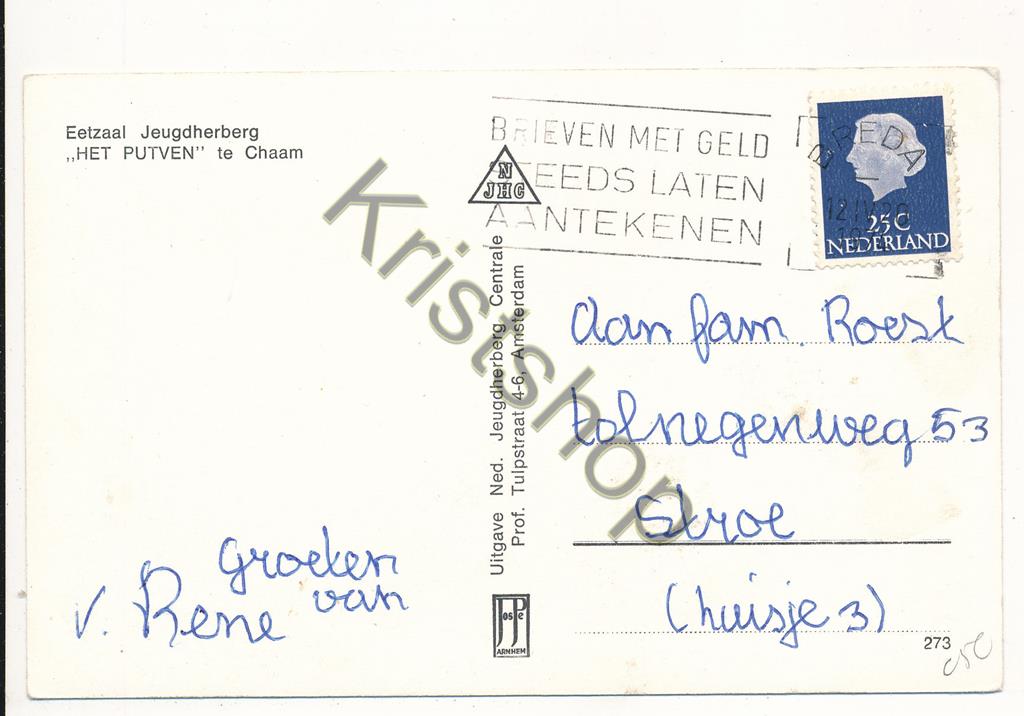 Eetzaal Jeugdherberg
„HET PUTVEN" te Chaam
BRIEVEN MET GELD
STEEDS LATEN
AANTEKENEN
N
JHC
BREDA
12 IV
25C
NEDERLAND
Kristshop
Uitgave Ned. Jeugdherberg Centrale
Prof. Tulpstraat 4-6, Amsterdam
aan fam. Roest
tolnegenweg 53
Stroe
(huisje 3)
groeten
van
v. Rene
JosPe
ARNHEM
273